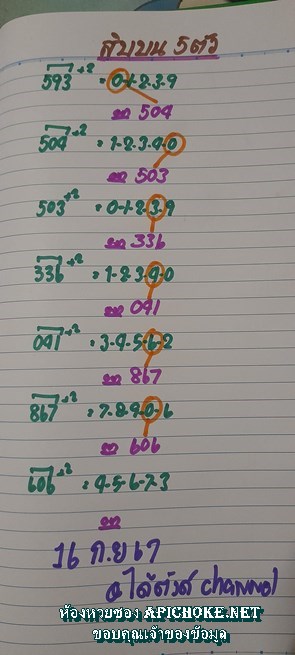 สิบบน 5ตัว
593 +2 = 0-1-2-3-9
ออก 504
504 +2 = 1-2-3-9-0
ออก 503
503 +2 = 0-1-2-3-9
ออก 336
336 +2 = 1-2-3-9-0
ออก 091
091 +2 = 3-4-5-6-2
ออก 867
867 +2 = 7-8-9-0-6
ออก 606
606 +2 = 4-5-6-7-3
ออก
16 ก.ย 67
channel
ห้องหวยซอง APICHOKE.NET
ขอบคุณเจ้าของข้อมูล